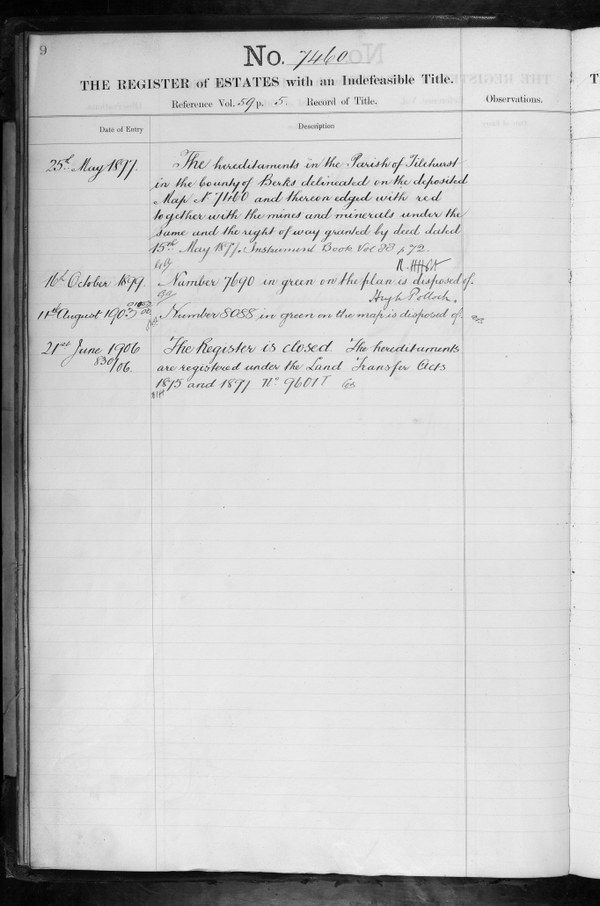 9
No. 7460
THE REGISTER of ESTATES with an Indefeasible Title.
Reference Vol. 59 p. 5. Record of Title.
Observations.
Date of Entry
Description
25th May 1897.
The hereditaments in the Parish of Tilehurst
in the County of Berks delineated on the deposited
Map No 7460 and thereon edged with red
together with the mines and minerals under the
same and the right of way granted by deed dated
15th May 1897. Instrument Book Vol 38 p 72.
16th October 1899.
Number 7690 in green on the plan is disposed of.
Hugh Pollock.
11th August 1903
Number 8088 in green on the map is disposed of.
21st June 1906
830/06.
The Register is closed. The hereditaments
are registered under the Land Transfer Acts
1875 and 1897 No 9601
T